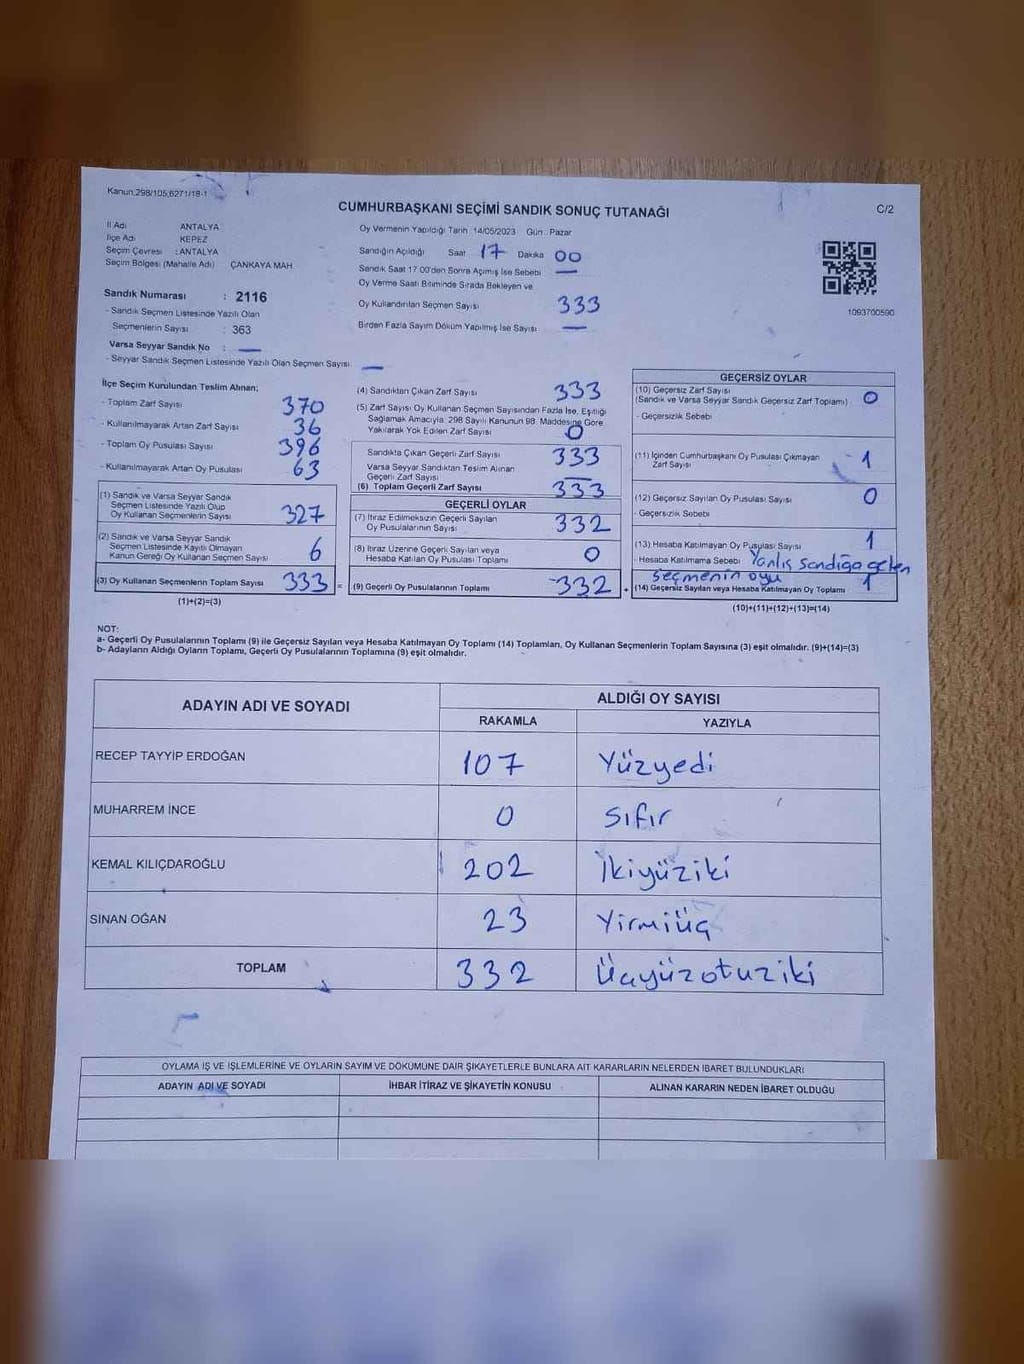 Kanun:298/105;6271/18-1
C/2
CUMHURBAŞKANI SEÇİMİ SANDIK SONUÇ TUTANAĞI
İl Adı ANTALYA
İlçe Adı KEPEZ
Seçim Çevresi : ANTALYA
Seçim Bölgesi (Mahalle Adı) ÇANKAYA MAH.
Sandık Numarası : 2116
- Sandık Seçmen Listesinde Yazılı Olan
Seçmenlerin Sayısı : 363
Varsa Seyyar Sandık No : —
- Seyyar Sandık Seçmen Listesinde Yazılı Olan Seçmen Sayısı —
Oy Vermenin Yapıldığı Tarih 14/05/2023 Gün Pazar
Sandığın Açıldığı Saat 17 Dakika 00
Sandık Saat 17.00'den Sonra Açılmış İse Sebebi —
Oy Verme Saati Bitiminde Sırada Bekleyen ve
Oy Kullandırılan Seçmen Sayısı 333
Birden Fazla Sayım Döküm Yapılmış İse Sayısı —
1093700590
İlçe Seçim Kurulundan Teslim Alınan;
- Toplam Zarf Sayısı 370
- Kullanılmayarak Artan Zarf Sayısı 36
- Toplam Oy Pusulası Sayısı 396
- Kullanılmayarak Artan Oy Pusulası 63
(1) Sandık ve Varsa Seyyar Sandık
Seçmen Listesinde Yazılı Olup
Oy Kullanan Seçmenlerin Sayısı 327
(2) Sandık ve Varsa Seyyar Sandık
Seçmen Listesinde Kayıtlı Olmayan
Kanun Gereği Oy Kullanan Seçmen Sayısı 6
(3) Oy Kullanan Seçmenlerin Toplam Sayısı 333 =
(1)+(2)=(3)
(4) Sandıktan Çıkan Zarf Sayısı 333
(5) Zarf Sayısı Oy Kullanan Seçmen Sayısından Fazla İse, Eşitliği
Sağlamak Amacıyla 298 Sayılı Kanunun 98. Maddesine Göre
Yakılarak Yok Edilen Zarf Sayısı 0
Sandıkta Çıkan Geçerli Zarf Sayısı 333
Varsa Seyyar Sandıktan Teslim Alınan
Geçerli Zarf Sayısı —
(6) Toplam Geçerli Zarf Sayısı 333
GEÇERLİ OYLAR
(7) İtiraz Edilmeksizin Geçerli Sayılan
Oy Pusulalarının Sayısı 332
(8) İtiraz Üzerine Geçerli Sayılan veya
Hesaba Katılan Oy Pusulası Toplamı 0
(9) Geçerli Oy Pusulalarının Toplamı 332 +
GEÇERSİZ OYLAR
(10) Geçersiz Zarf Sayısı
(Sandık ve Varsa Seyyar Sandık Geçersiz Zarf Toplamı) 0
- Geçersizlik Sebebi
(11) İçinden Cumhurbaşkanı Oy Pusulası Çıkmayan
Zarf Sayısı 1
(12) Geçersiz Sayılan Oy Pusulası Sayısı 0
- Geçersizlik Sebebi
(13) Hesaba Katılmayan Oy Pusulası Sayısı 1
- Hesaba Katılmama Sebebi Yanlış sandığa gelen
seçmenin oyu
(14) Geçersiz Sayılan veya Hesaba Katılmayan Oy Toplamı 1
(10)+(11)+(12)+(13)=(14)
NOT:
a- Geçerli Oy Pusulalarının Toplamı (9) ile Geçersiz Sayılan veya Hesaba Katılmayan Oy Toplamı (14) Toplamları, Oy Kullanan Seçmenlerin Toplam Sayısına (3) eşit olmalıdır. (9)+(14)=(3)
b- Adayların Aldığı Oyların Toplamı, Geçerli Oy Pusulalarının Toplamına (9) eşit olmalıdır.
ADAYIN ADI VE SOYADI
ALDIĞI OY SAYISI
RAKAMLA YAZIYLA
RECEP TAYYİP ERDOĞAN 107 Yüzyedi
MUHARREM İNCE 0 Sıfır
KEMAL KILIÇDAROĞLU 202 İkiyüziki
SİNAN OĞAN 23 Yirmiüç
TOPLAM 332 Üçyüzotuziki
OYLAMA İŞ VE İŞLEMLERİNE VE OYLARIN SAYIM VE DÖKÜMÜNE DAİR ŞİKAYETLERLE BUNLARA AİT KARARLARIN NELERDEN İBARET BULUNDUKLARI
ADAYIN ADI VE SOYADI İHBAR İTİRAZ VE ŞİKAYETİN KONUSU ALINAN KARARIN NEDEN İBARET OLDUĞU